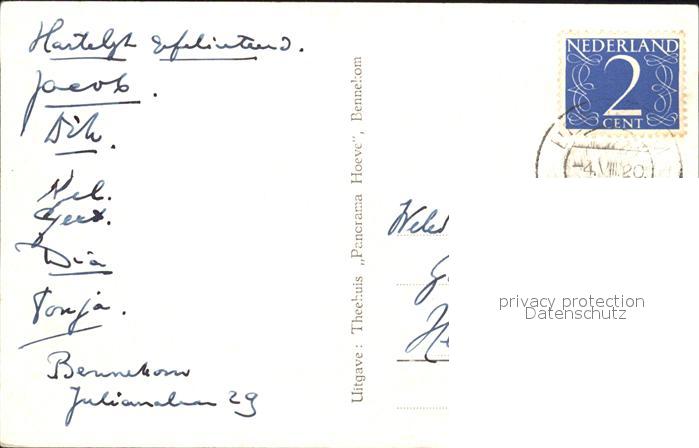 Hartelijk gefeliciteerd.
Jacob.
Dik.
Nel.
Gert.
Dia
Tonja.
Bennekom
Julianalaan 29
Uitgave: Theehuis „Panorama Hoeve", Bennekom
NEDERLAND
2
CENT
4.VIII.20.
privacy protection
Datenschutz